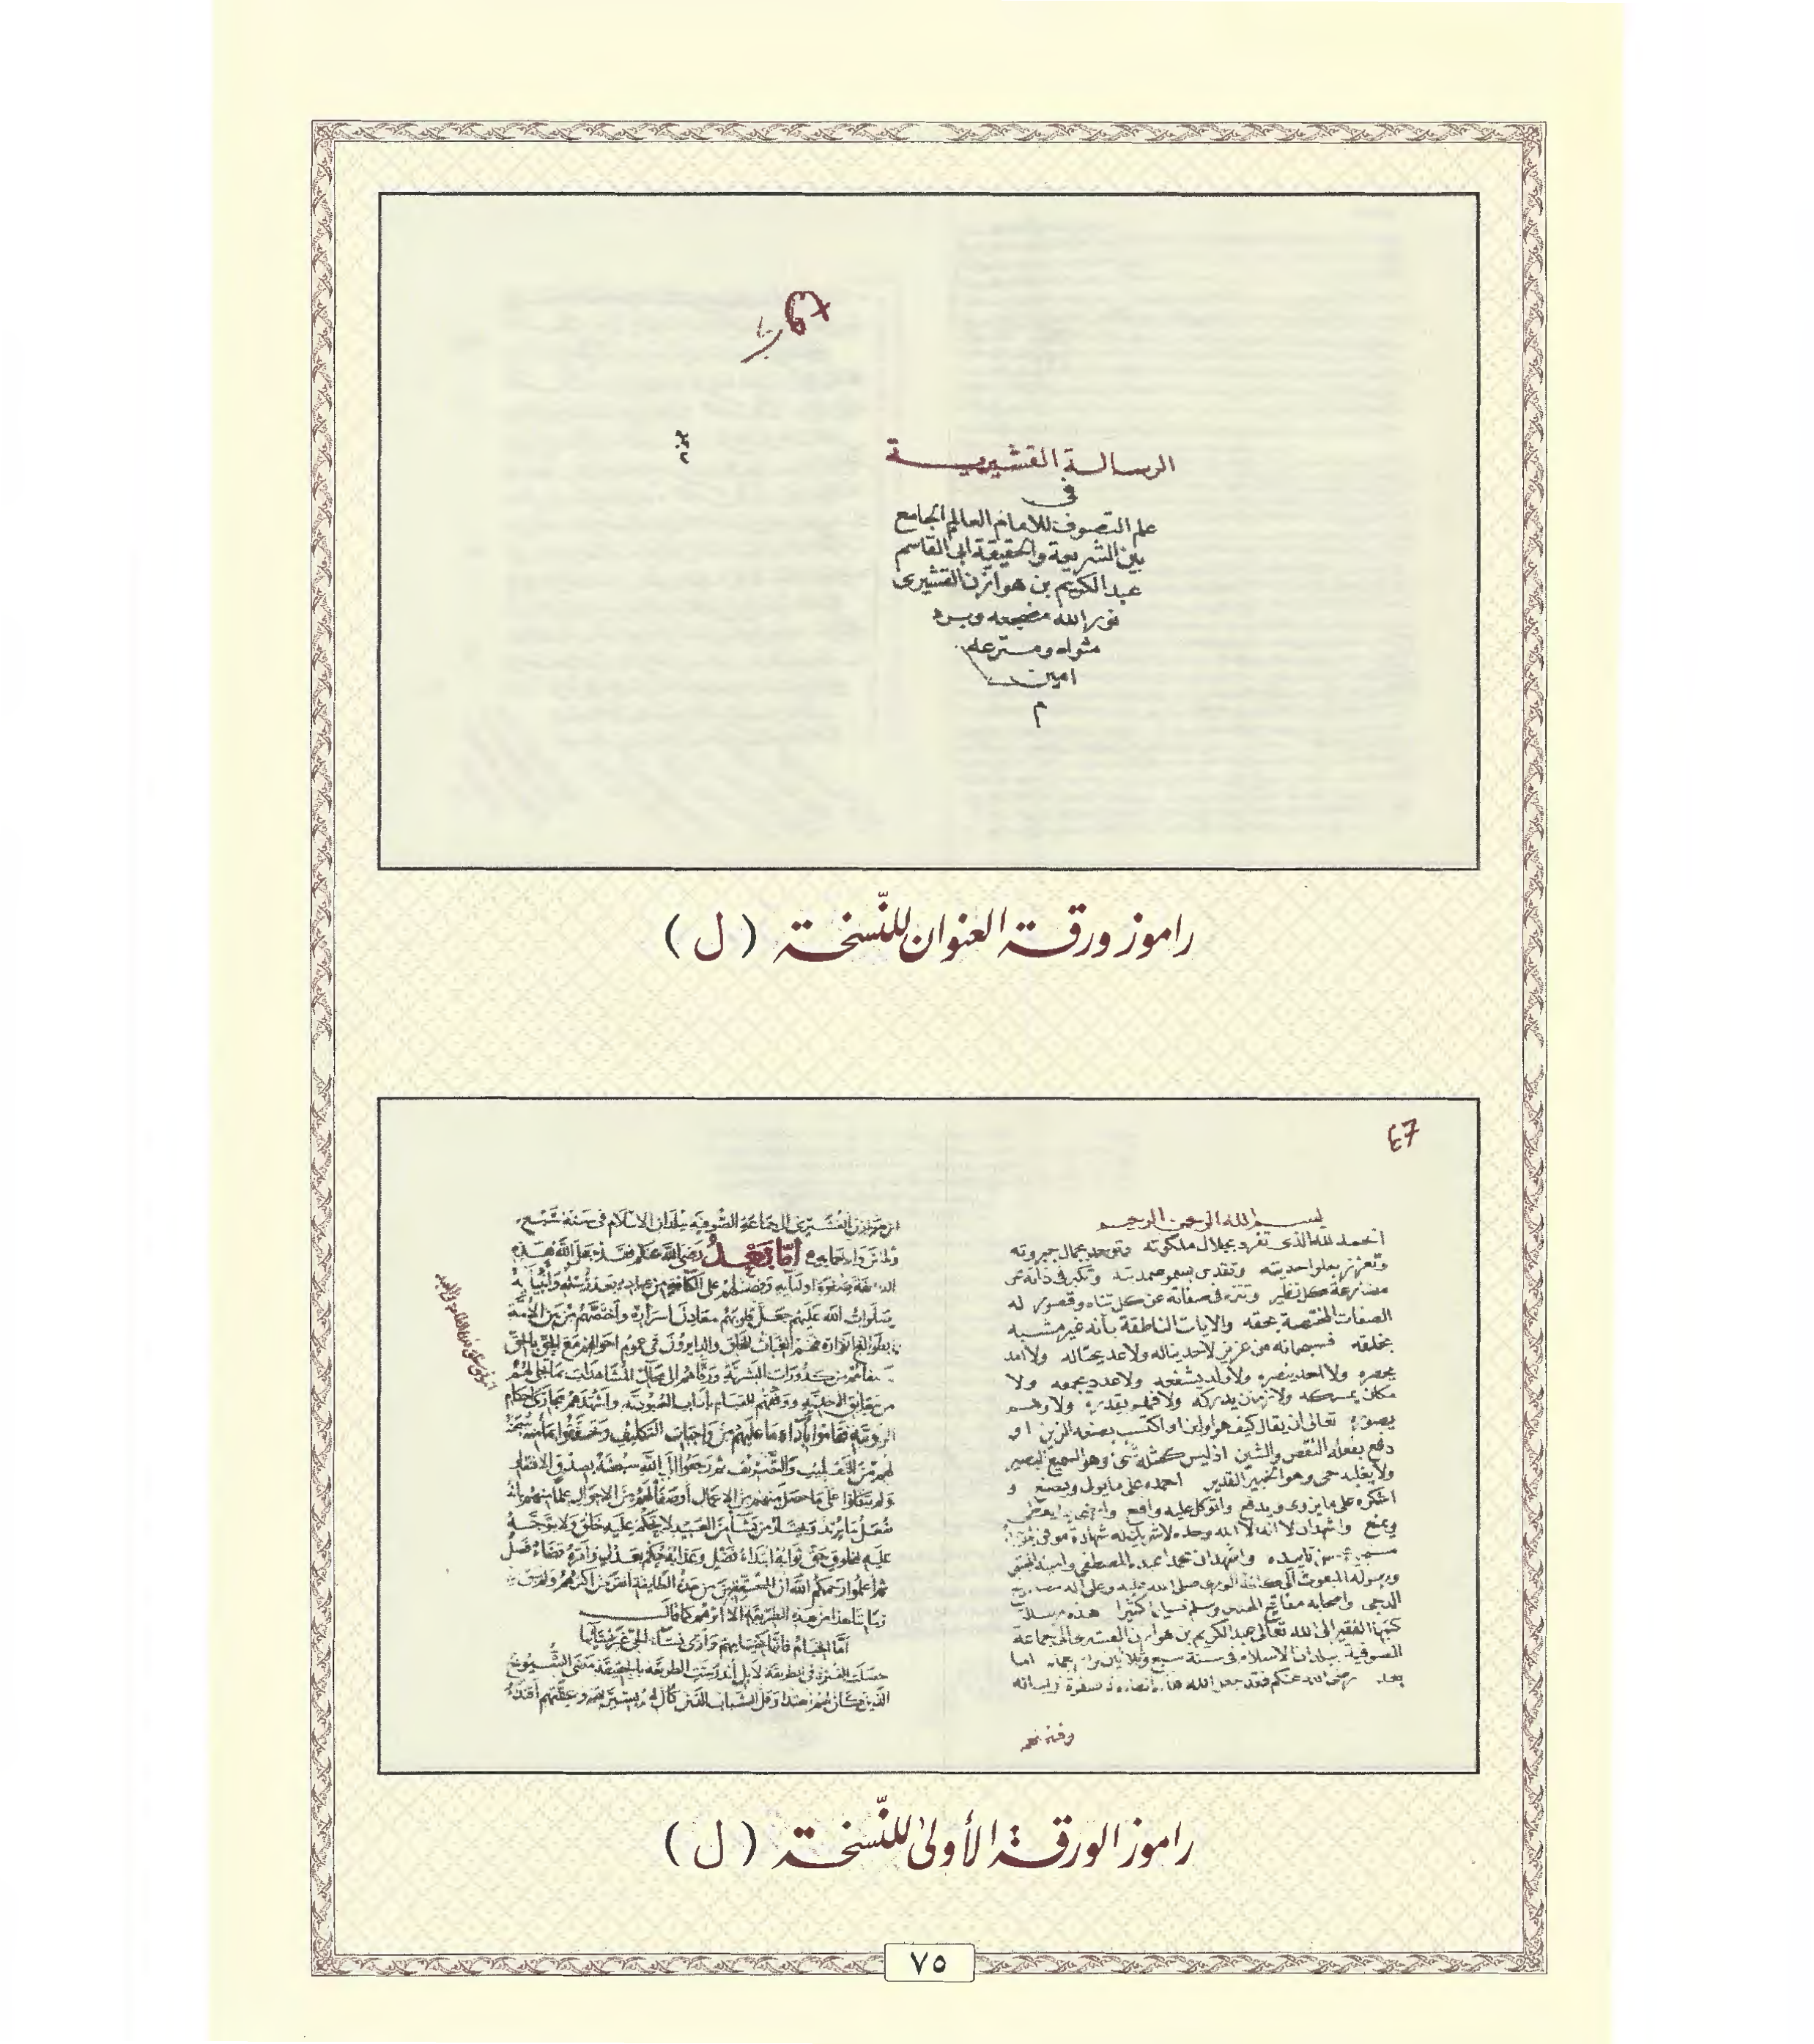 الرسالة القشيرية
في
علم التصوف للامام العالم الجامع
بين الشريعة والحقيقة ابي القاسم
عبد الكريم بن هوازن القشيرى
نور الله مضجعه وبرد
مثواه و
امين
م
راموز ورقة العنوان للنّسخة ( ل )
بسم الله الرحمن الرحيم
الحمد لله الذى تفرد بجلال ملكوته وتوحد بجمال جبروته
وتعزز بعلو احديته وتقدس بسمو صمديته وتكبر فى ذاته عن
مضارعة كل نظير وتنزه فى صفاته عن كل تناه وقصور له
الصفات المختصة بحقه والايات الناطقة بأنه غير مشبه
بخلقه فسبحانه من عزيز لا حد يناله ولا عد يحتاله ولا امد
يحصره ولا احد ينصره ولا ولد يشفعه ولا عدد يجمعه ولا
مكان يمسكه ولا زمان يدركه ولا فهم يقدره ولا وهم
يصوره تعالى ان يقال كيف هو او اين او اكتسب بصنعه الزين او
دفع بفعله النقص والشين اذ ليس كمثله شئ وهو السميع البصير
ولا يغلبه حى وهو الخبير القدير احمده على ما يولى ويصنع و
اشكره على ما يزوى ويدفع واتوكل عليه واقنع وارضى بما يعطى
ويمنع واشهد ان لا اله الا الله وحده لا شريك له شهادة موقن
تاييده واشهد ان محمدا عبده المصطفى وامينه المجتبى
ورسوله المبعوث الى كافة الورى صلى الله عليه وعلى اله مصابيح
الدجى واصحابه مفاتيح الهدى وسلم تسليما كثيرا هذه رسالة
كتبها الفقير الى الله تعالى عبد الكريم بن هوازن القشيرى الى جماعة
الصوفية ببلدان الاسلام فى سنة سبع وثلاثين واربعمائة اما
بعد رضى الله عنكم فقد جعل الله هذه
بن هوازن القشيرى الى جماعة الصوفية ببلدان الاسلام فى سنة سبع
أمّا بعد رضى الله عنكم فقد جعل الله هذه
صفوة اوليايه وفضلهم على الكافة من عباده بعد رسله وأنبيائه
صلوات الله عليهم جعل قلوبهم معادن اسراره واختصهم من بين الأمة
بطوالع انواره فهم الغياث للخلق والدايرون فى عموم احوالهم مع الحق بالحق
من كدورات البشرية ورقاهم الى محال المشاهدات بما تجلى لهم
من حقايق الاحدية ووفقهم للقيام بآداب العبودية واشهدهم مجارى احكام
الربوبية فقاموا بأداء ما عليهم من واجبات التكليف وتحققوا بما منه سبحانه
لهم من التقليب والتصريف ثم رجعوا الى الله سبحانه بصدق الافتقار
ولم يتكلوا على ما حصل منهم من الاعمال أو صفا لهم من الاحوال علما منهم بأنه
يفعل ما يريد ويختار من يشاء من العبيد لا يحكم عليه خلق ولا يتوجه
عليه لمخلوق حق ثوابه ابتداء فضل وعذابه حكم بعدل وأمره قضاء فصل
ثم اعلموا رحمكم الله أن المحققين من هذه الطايفة انقرض أكثرهم ولم يبق فى
زماننا هذا من هذه الطريقة الا أثرهم كما قال
أمّا الخيام فانها كخيامهم وأرى نساء الحى غير نسائها
حصلت الفترة فى الطريقة لا بل اندرست الطريقة بالحقيقة مضى الشيوخ
الذين كان لهم اهتداء وقل الشباب الذين كان لهم بسيرتهم وسنتهم اقتداء
راموز الورقة الأولى للنّسخة ( ل )
٧٥